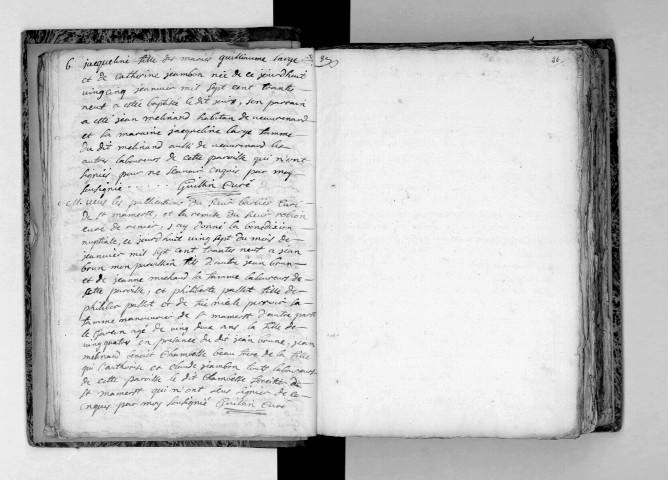 6 jacqueline fille des mariés guilliaume large
et de catherine jeambon née de ce jourdhuit
vingcinq jeanvier mil sept cent trante
neuf a estée baptisée le dit jour, son parrain
a esté jean melinard habitan de
et la maraine jacqueline large famme
du dit melinard aussi de
autres laboureurs de cette paroisse qui n'ont
signiés pour ne sçavoir enquis par moy
soussignié Guillin Curé
M. veus les publications du sieur curé
de st mamerst, et la remise du sieur
curé de j'ay donné la bénédiction
nuptiale, ce jourdhuit vingt sept du mois de
jeanvier mil sept cent trantes neuf a jean
brun mon parroissien fils d'autre jean brun
et de jeanne michaud sa famme laboureurs de
cette paroisse, et philiberte pallet fille de
philibert pallet et de
famme manouvrier de st mamerst d'autre part
le garçon agé de vingt deux ans la fille de
vingquatre en présance du dit jean brune, jean
melinard benoit Chambelle beau frere de la fille
qui l'authorise et claude jeambon touts laboureurs
de cette paroisse le dit Chambelle de
st mamerst qui n'ont sceus signier de ce
enquis par moy soussignié Guillin Curé
26